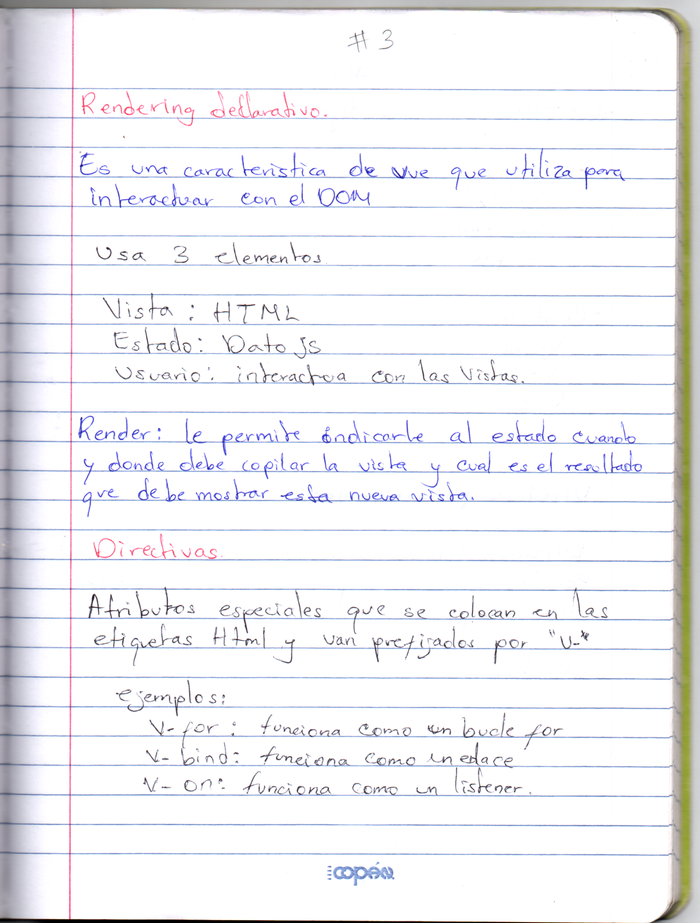 # 3
Rendering declarativo.
Es una caracteristica de vue que utiliza para
interactuar con el DOM
Usa 3 elementos
Vista : HTML
Estado: Dato JS
Usuario: interactua con las Vistas.
Render: le permite indicarle al estado cuando
y donde debe copilar la vista y cual es el resultado
que debe mostrar esta nueva vista.
Directivas.
Atributos especiales que se colocan en las
etiquetas Html y van prefijados por "v-"
ejemplos:
V-for: funciona como un bucle for
V-bind: funciona como un edace
V-on: funciona como un listener.
copán